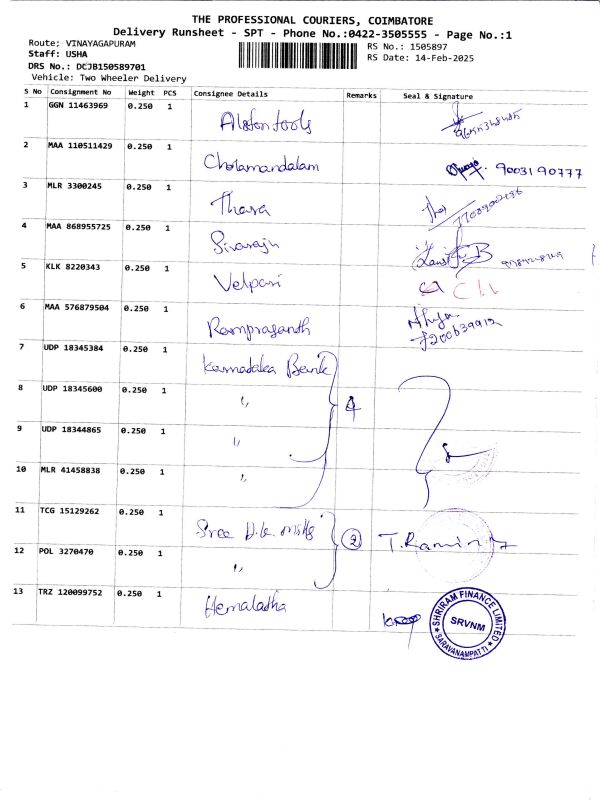 THE PROFESSIONAL COURIERS, COIMBATORE
Delivery Runsheet - SPT - Phone No.:0422-3505555 - Page No.:1
Route; VINAYAGAPURAM
Staff: USHA
DRS No.: DCJB150589701
Vehicle: Two Wheeler Delivery
RS No.: 1505897
RS Date: 14-Feb-2025
S No Consignment No Weight PCS Consignee Details Remarks Seal & Signature
1 GGN 11463969 0.250 1 Alston tools
2 MAA 110511429 0.250 1 Cholamandalam 9003190777
3 MLR 3300245 0.250 1 Thara
4 MAA 868955725 0.250 1 Sivaraju
5 KLK 8220343 0.250 1 Velpari
6 MAA 576879504 0.250 1 Ramprasanth
7 UDP 18345384 0.250 1 Karnataka Bank
8 UDP 18345600 0.250 1 " 4
9 UDP 18344865 0.250 1 "
10 MLR 41458838 0.250 1 "
11 TCG 15129262 0.250 1 Sree 2
12 POL 3270470 0.250 1 "
13 TRZ 120099752 0.250 1 Hemalatha
SHRIRAM FINANCE LIMITED
SRVNM
SARAVANAMPATTI